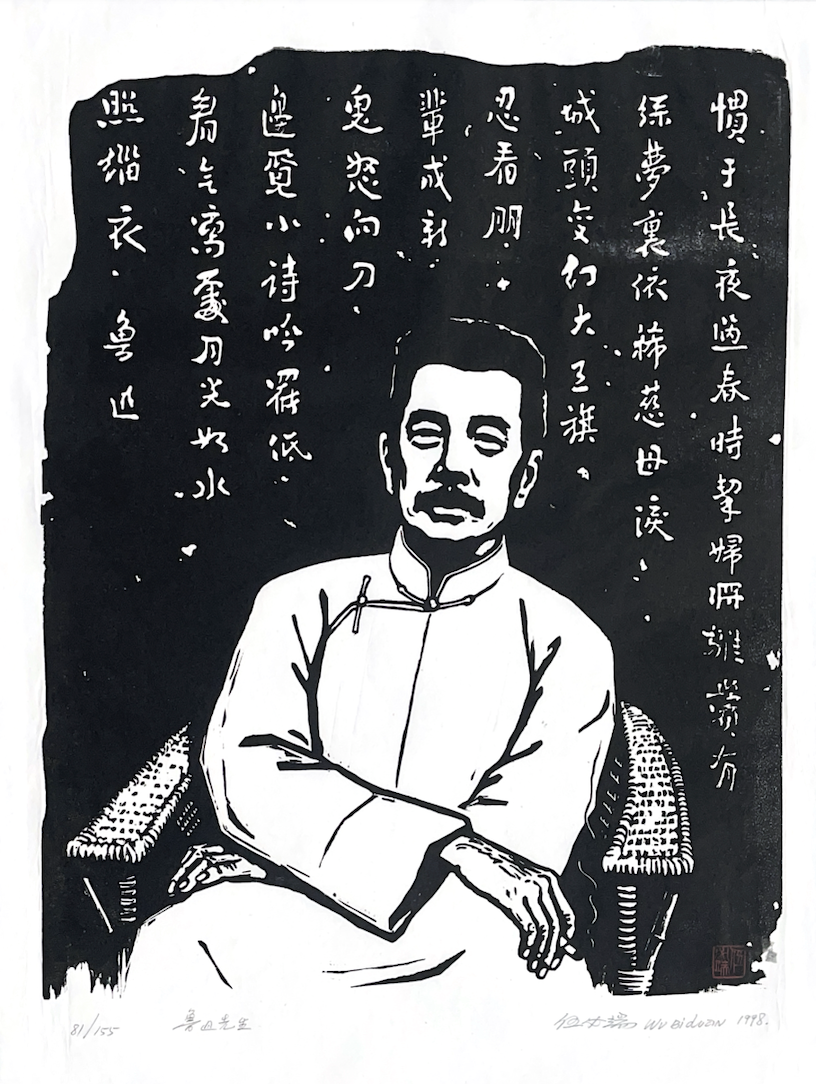 慣于長夜過春時挈婦將雛鬢有
絲夢裏依稀慈母淚
城頭變幻大王旗
忍看朋
輩成新
鬼怒向刀
邊覓小詩吟罷低
眉无寫處月光如水
照緇衣 魯迅
81/155 魯迅先生 伍必端 Wu Biduan 1998.